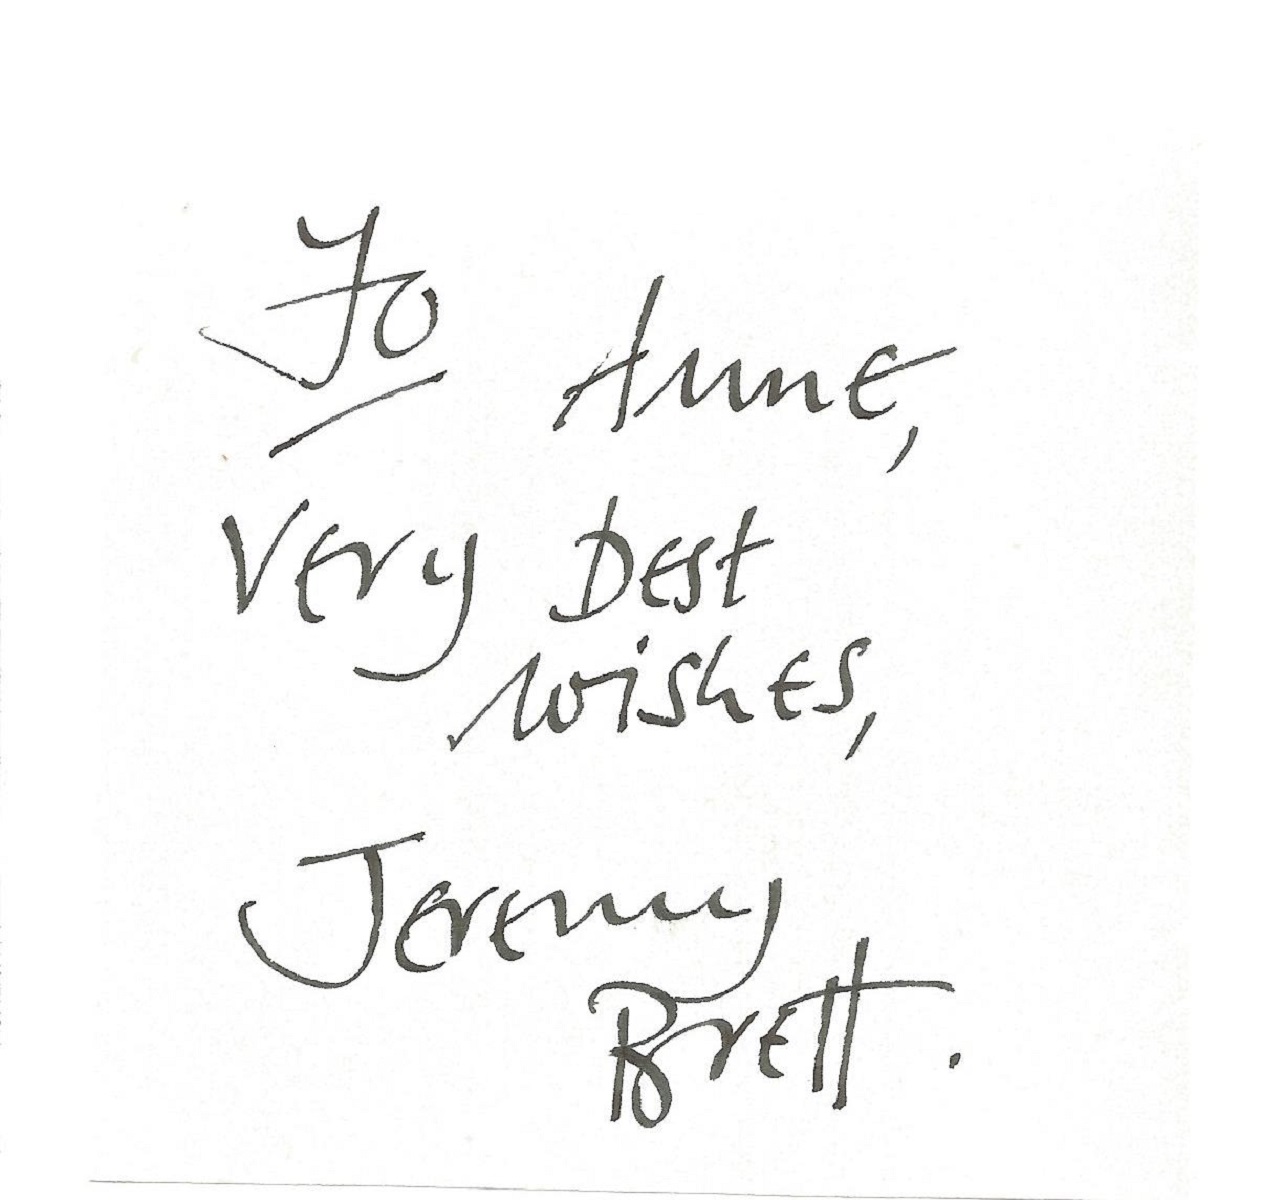 To Anne,
Very Best
wishes,
Jeremy
Brett.